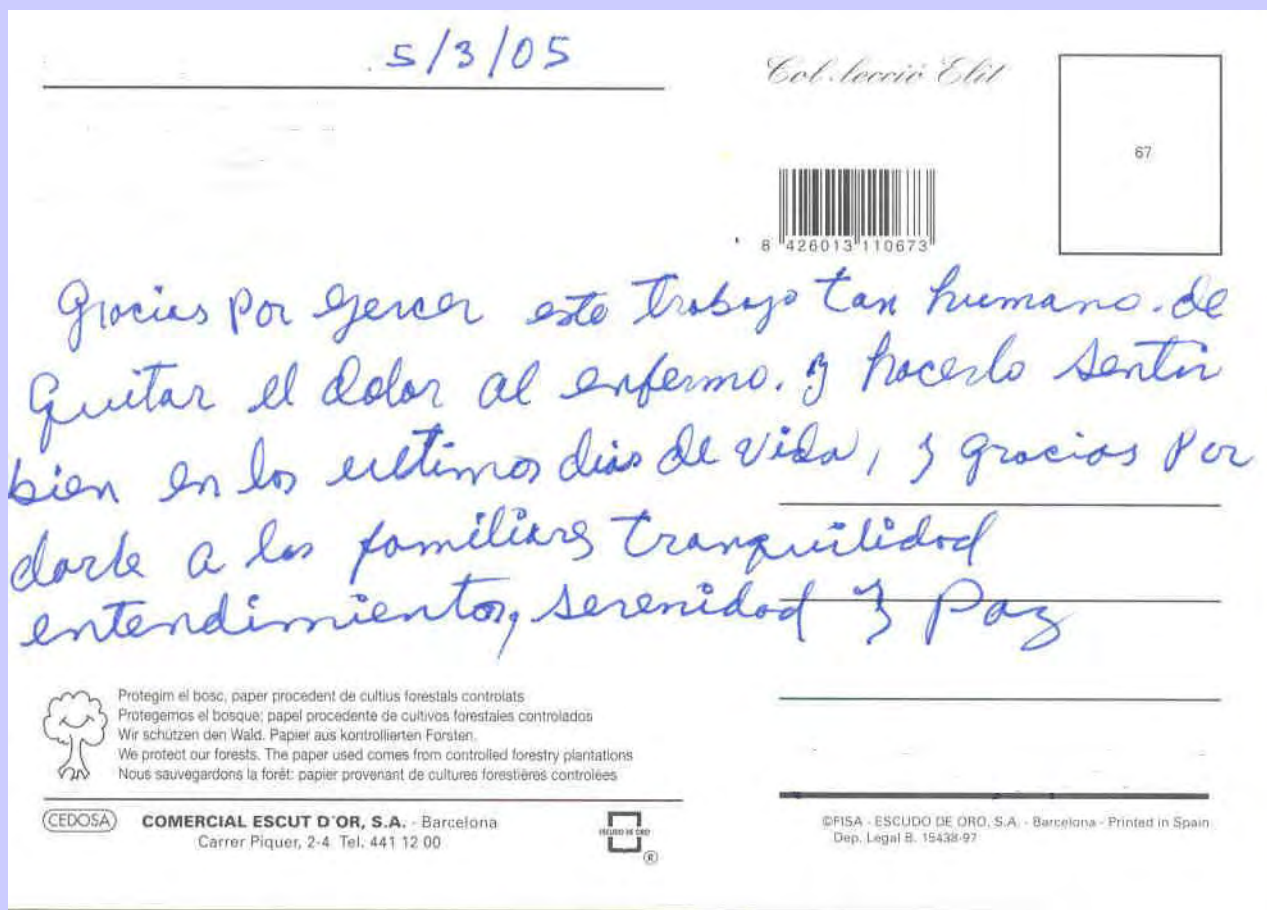 5/3/05
Col·lecció Elit
67
8 426013 110673
Gracias por ejercer este trabajo tan humano. de
Quitar el dolor al enfermo. y hacerlo sentir
bien en los ultimos dias de vida, y gracias Por
darle a los familiares tranquilidad
entendimiento, serenidad y Paz
Protegim el bosc, paper procedent de cultius forestals controlats
Protegemos el bosque; papel procedente de cultivos forestales controlados
Wir schützen den Wald. Papier aus kontrollierten Forsten.
We protect our forests. The paper used comes from controlled forestry plantations
Nous sauvegardons la forêt: papier provenant de cultures forestières controlées
CEDOSA COMERCIAL ESCUT D'OR, S.A. - Barcelona
Carrer Piquer, 2-4 Tel. 441 12 00
ESCUDO DE ORO
®
©FISA - ESCUDO DE ORO, S.A. - Barcelona - Printed in Spain
Dep. Legal B. 15438-97